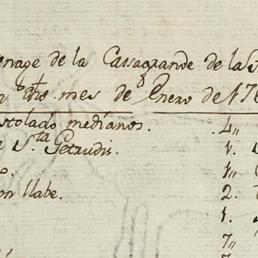 enage de la Casagrande de la
dho mes de Enero de 17
medianos. 4,,
Sta Getrudis. 1.
o. 1,,
on llabe. 2.
1.
7,,
7